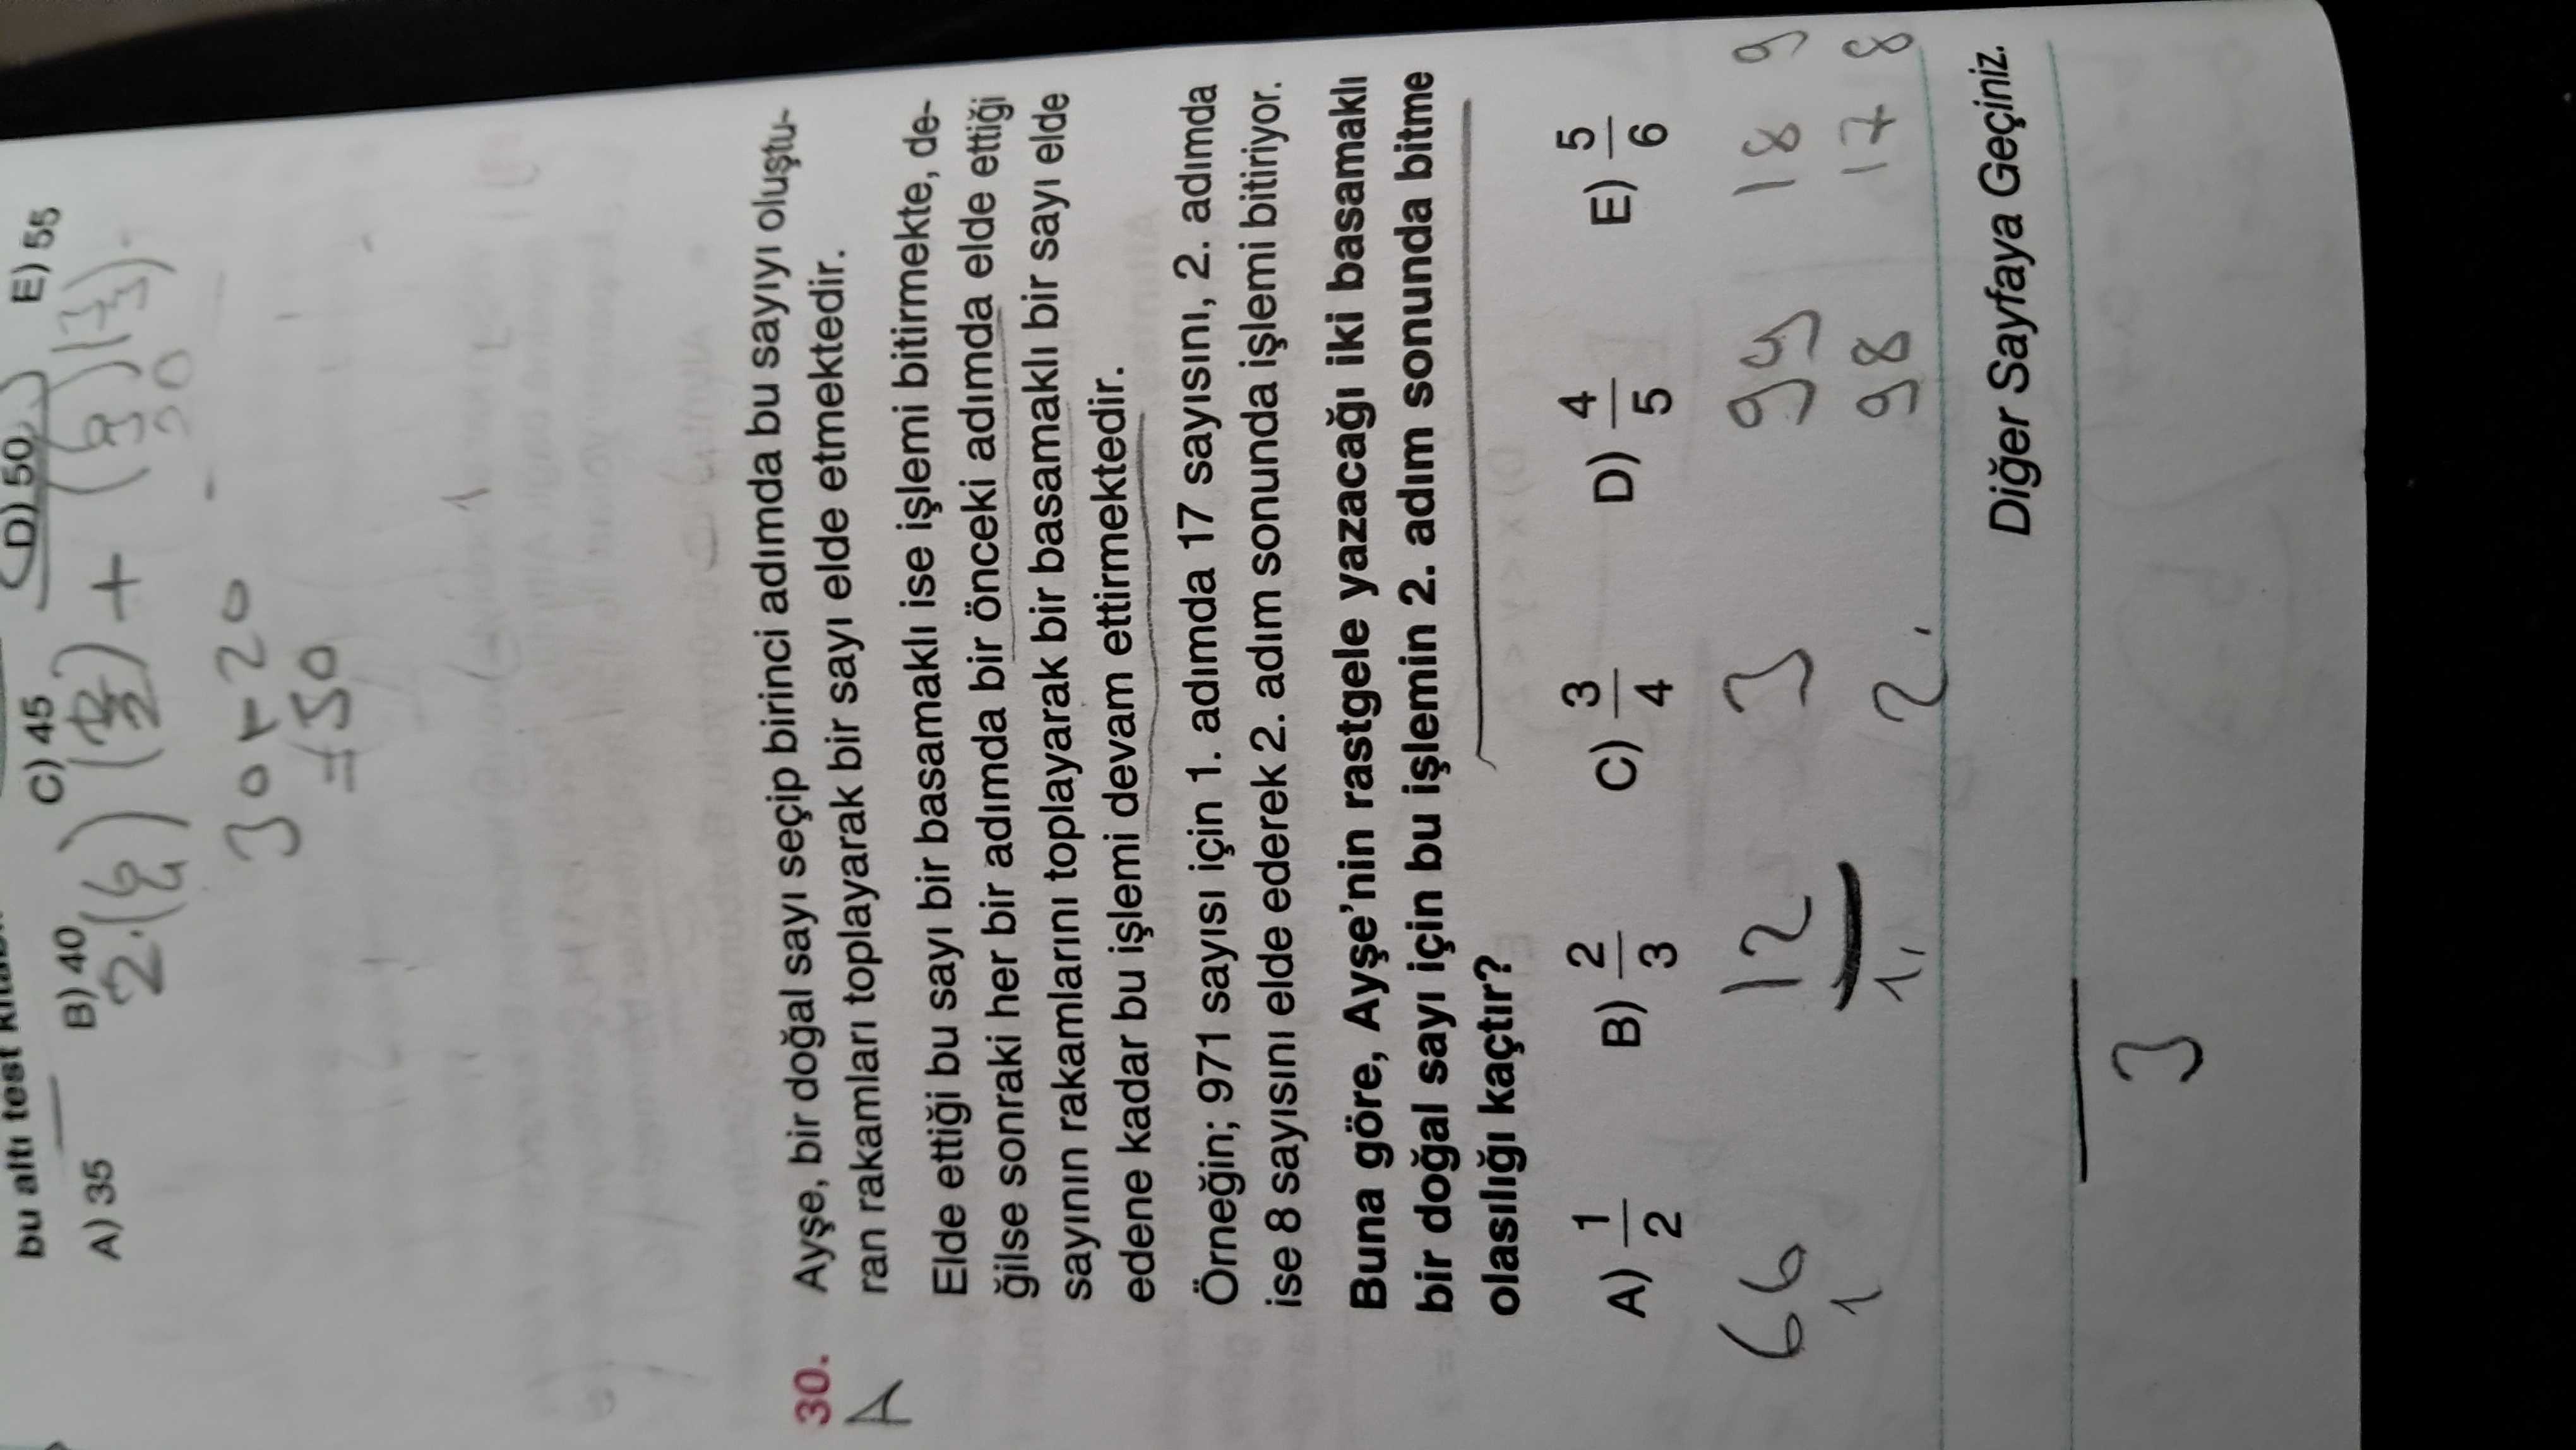 bu altı test
A) 35 B) 40 C) 45 D) 50 E) 55
2.
+
30+20
=50
30. Ayşe, bir doğal sayı seçip birinci adımda bu sayıyı oluştu-
ran rakamları toplayarak bir sayı elde etmektedir.
A
Elde ettiği bu sayı bir basamaklı ise işlemi bitirmekte, de-
ğilse sonraki her bir adımda bir önceki adımda elde ettiği
sayının rakamlarını toplayarak bir basamaklı bir sayı elde
edene kadar bu işlemi devam ettirmektedir.
Örneğin; 971 sayısı için 1. adımda 17 sayısını, 2. adımda
ise 8 sayısını elde ederek 2. adım sonunda işlemi bitiriyor.
Buna göre, Ayşe’nin rastgele yazacağı iki basamaklı
bir doğal sayı için bu işlemin 2. adım sonunda bitme
olasılığı kaçtır?
A) 1/2 B) 2/3 C) 3/4 D) 4/5 E) 5/6
66 12 3 99 18 9
1 1. 2. 98 17 8
Diğer Sayfaya Geçiniz.
3